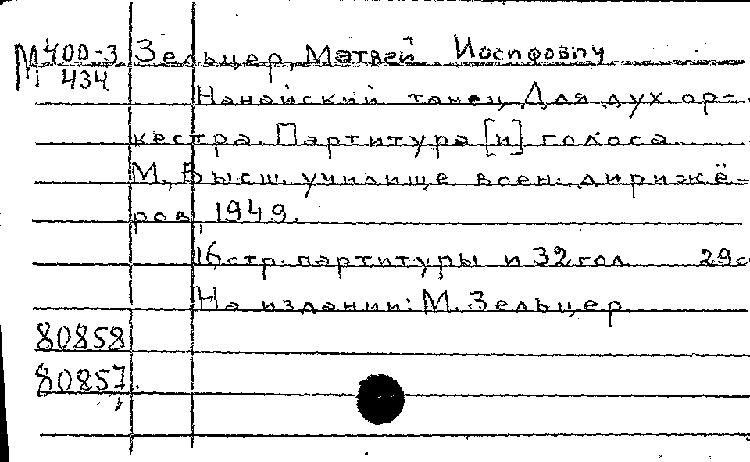 М 400-3 Зельцер, Матвей Иосифович
434
Нанайский танец. Для дух. ор-
кестра. Партитура [и] голоса.
М., Высш. училище воен. дирижё-
ров, 1949.
16 стр. партитуры и 32 гол. 29с
На издании: М. Зельцер.
80858
80857